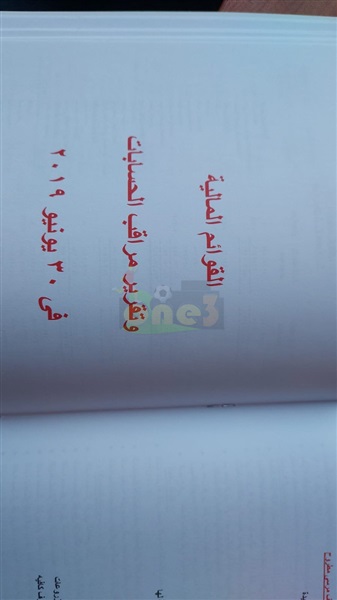 القوائم المالية
وتقرير مراقب الحسابات
فى ٣٠ يونيو ٢٠١٩
One3